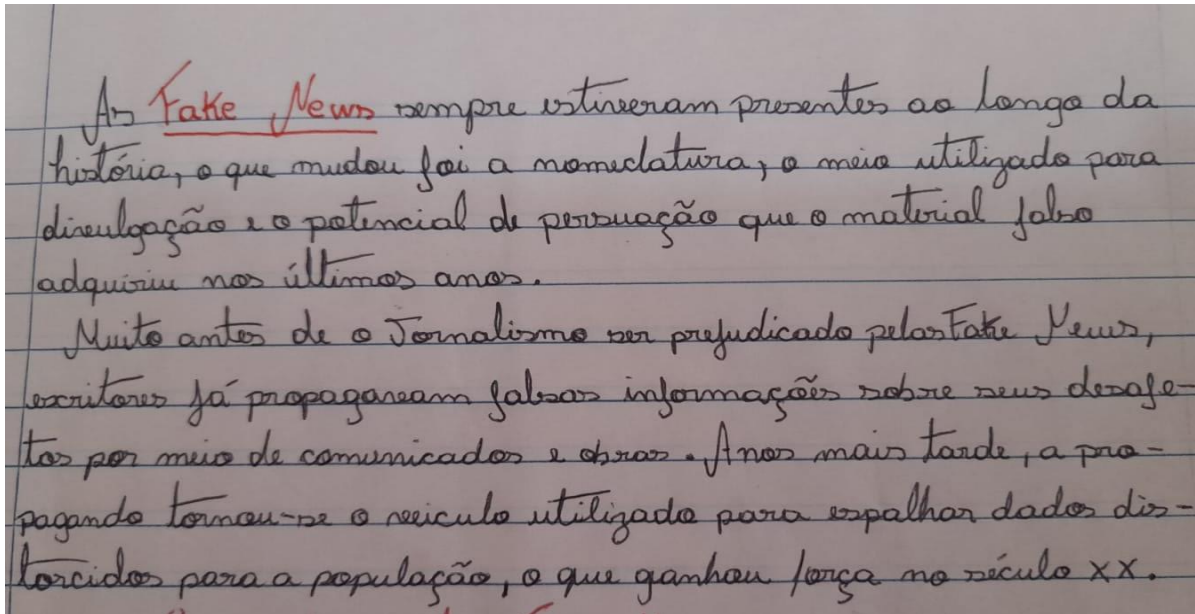 As Fake News sempre estiveram presentes ao longo da
história, o que mudou foi a nomeclatura, o meio utilizado para
divulgação e o potencial de persuação que o material falso
adquiriu nos últimos anos.
Muito antes de o Jornalismo ser prejudicado pelas Fake News,
escritores já propagavam falsas informações sobre seus desafe-
tos por meio de comunicados e obras. Anos mais tarde, a pro-
pagando tornou-se o veiculo utilizado para espalhar dados dis-
torcidos para a população, o que ganhou força no século XX.